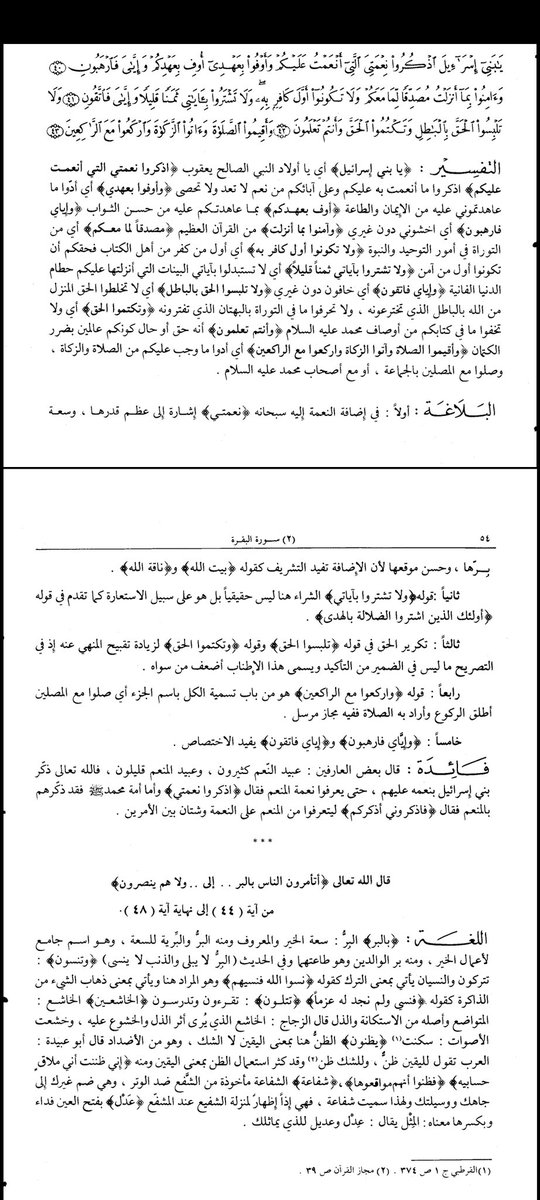 يَٰبَنِىٓ إِسْرَٰٓءِيلَ ٱذْكُرُوا۟ نِعْمَتِىَ ٱلَّتِىٓ أَنْعَمْتُ عَلَيْكُمْ وَأَوْفُوا۟ بِعَهْدِىٓ أُوفِ بِعَهْدِكُمْ وَإِيَّٰىَ فَٱرْهَبُونِ ﴿٤٠﴾
وَءَامِنُوا۟ بِمَآ أَنزَلْتُ مُصَدِّقًا لِّمَا مَعَكُمْ وَلَا تَكُونُوٓا۟ أَوَّلَ كَافِرٍۭ بِهِۦ وَلَا تَشْتَرُوا۟ بِـَٔايَٰتِى ثَمَنًا قَلِيلًا وَإِيَّٰىَ فَٱتَّقُونِ ﴿٤١﴾ وَلَا
تَلْبِسُوا۟ ٱلْحَقَّ بِٱلْبَٰطِلِ وَتَكْتُمُوا۟ ٱلْحَقَّ وَأَنتُمْ تَعْلَمُونَ ﴿٤٢﴾ وَأَقِيمُوا۟ ٱلصَّلَوٰةَ وَءَاتُوا۟ ٱلزَّكَوٰةَ وَٱرْكَعُوا۟ مَعَ ٱلرَّٰكِعِينَ ﴿٤٣﴾
التفسير : ﴿يا بني إسرائيل﴾ أي يا أولاد النبي الصالح يعقوب ﴿اذكروا نعمتي التي أنعمت
عليكم﴾ اذكروا ما أنعمت به عليكم وعلى آبائكم من نعم لا تعد ولا تحصى ﴿وأوفوا بعهدي﴾ أي أدّوا ما
عاهدتموني عليه من الإيمان والطاعة ﴿أوف بعهدكم﴾ بما عاهدتكم عليه من حسن الثواب ﴿وإياي
فارهبون﴾ أي اخشوني دون غيري ﴿وآمنوا بما أنزلت﴾ من القرآن العظيم ﴿مصدقاً لما معكم﴾ أي من
التوراة في أمور التوحيد والنبوة ﴿ولا تكونوا أول كافر به﴾ أي أول من كفر من أهل الكتاب فحقكم أن
تكونوا أول من آمن ﴿ولا تشتروا بآياتي ثمناً قليلاً﴾ أي لا تستبدلوا بآياتي البينات التي أنزلتها عليكم حطام
الدنيا الفانية ﴿وإياي فاتقون﴾ أي خافون دون غيري ﴿ولا تلبسوا الحق بالباطل﴾ أي لا تخلطوا الحق المنزل
من الله بالباطل الذي تخترعونه ، ولا تحرفوا ما في التوراة بالبهتان الذي تفترونه ﴿وتكتموا الحق﴾ أي ولا
تخفوا ما في كتابكم من أوصاف محمد عليه السلام ﴿وأنتم تعلمون﴾ أنه حق أو حال كونكم عالمين بضرر
الكتمان ﴿وأقيموا الصلاة وآتوا الزكاة واركعوا مع الراكعين﴾ أي أدوا ما وجب عليكم من الصلاة والزكاة ،
وصلوا مع المصلين بالجماعة ، أو مع أصحاب محمد عليه السلام .
البلاغة : أولاً : في إضافة النعمة إليه سبحانه ﴿نعمتي﴾ إشارة إلى عظم قدرها ، وسعة
٥٤ (٢) سورة البقرة
بِرّها ، وحسن موقعها لأن الإضافة تفيد التشريف كقوله ﴿بيت الله﴾ و﴿ناقة الله﴾ .
ثانياً :قوله﴿ولا تشتروا بآياتي﴾ الشراء هنا ليس حقيقياً بل هو على سبيل الاستعارة كما تقدم في قوله
﴿أولئك الذين اشتروا الضلالة بالهدى﴾ .
ثالثاً : تكرير الحق في قوله ﴿تلبسوا الحق﴾ وقوله ﴿وتكتموا الحق﴾ لزيادة تقبيح المنهي عنه إذ في
التصريح ما ليس في الضمير من التأكيد ويسمى هذا الإطناب أضعف من سواه .
رابعاً : قوله ﴿واركعوا مع الراكعين﴾ هو من باب تسمية الكل باسم الجزء أي صلوا مع المصلين
أطلق الركوع وأراد به الصلاة ففيه مجاز مرسل .
خامساً : ﴿وإيَّاي فارهبون﴾ و﴿إياي فاتقون﴾ يفيد الاختصاص .
فائدة : قال بعض العارفين : عبيد النّعم كثيرون ، وعبيد المنعم قليلون ، فالله تعالى ذكّر
بني إسرائيل بنعمه عليهم ، حتى يعرفوا نعمة المنعم فقال ﴿اذكروا نعمتي﴾ وأما أمة محمد ﷺ فقد ذكّرهم
بالمنعم فقال ﴿فاذكروني أذكركم﴾ ليتعرفوا من المنعم على النعمة وشتان بين الأمرين .
* * *
قال الله تعالى ﴿أتأمرون الناس بالبر .. إلى .. ولا هم ينصرون﴾
من آية ( ٤٤ ) إلى نهاية آية ( ٤٨ ) .
اللغة : ﴿بالبر﴾ البِرُّ : سعة الخير والمعروف ومنه البرُّ والبرِّية للسعة ، وهو اسم جامع
لأعمال الخير ، ومنه بر الوالدين وهو طاعتهما وفي الحديث (البرُّ لا يبلى والذنب لا ينسى) ﴿وتنسون﴾ :
تتركون والنسيان يأتي بمعنى الترك كقوله ﴿نسوا الله فنسيهم﴾ وهو المراد هنا ويأتي بمعنى ذهاب الشيء من
الذاكرة كقوله ﴿فنسي ولم نجد له عزماً﴾ ﴿تتلون﴾ : تقرءون وتدرسون ﴿الخاشعين﴾ الخاشع :
المتواضع وأصله من الاستكانة والذل قال الزجاج : الخاشع الذي يُرى أثر الذل والخشوع عليه ، وخشعت
الأصوات : سكنت(١) ﴿يظنون﴾ الظنُّ هنا بمعنى اليقين لا الشك ، وهو من الأضداد قال أبو عبيدة :
العرب تقول لليقين ظنٌّ ، وللشك ظن(٢) وقد كثر استعمال الظن بمعنى اليقين ومنه ﴿إني ظننت أني ملاقٍ
حسابيه﴾ ﴿فظنوا أنهم مواقعوها﴾، ﴿شفاعة﴾ الشفاعة مأخوذة من الشَّفع ضد الوتر ، وهي ضم غيرك إلى
جاهك ووسيلتك ولهذا سميت شفاعة ، فهي إذاً إظهارٌ لمنزلة الشفيع عند المشفّع ﴿عَدْل﴾ بفتح العين فداء
وبكسرها معناه: المِثْل يقال : عِدْل وعديل للذي يماثلك .
(١)القرطبي ج ١ ص ٣٧٤ . (٢) مجاز القرآن ص ٣٩ .